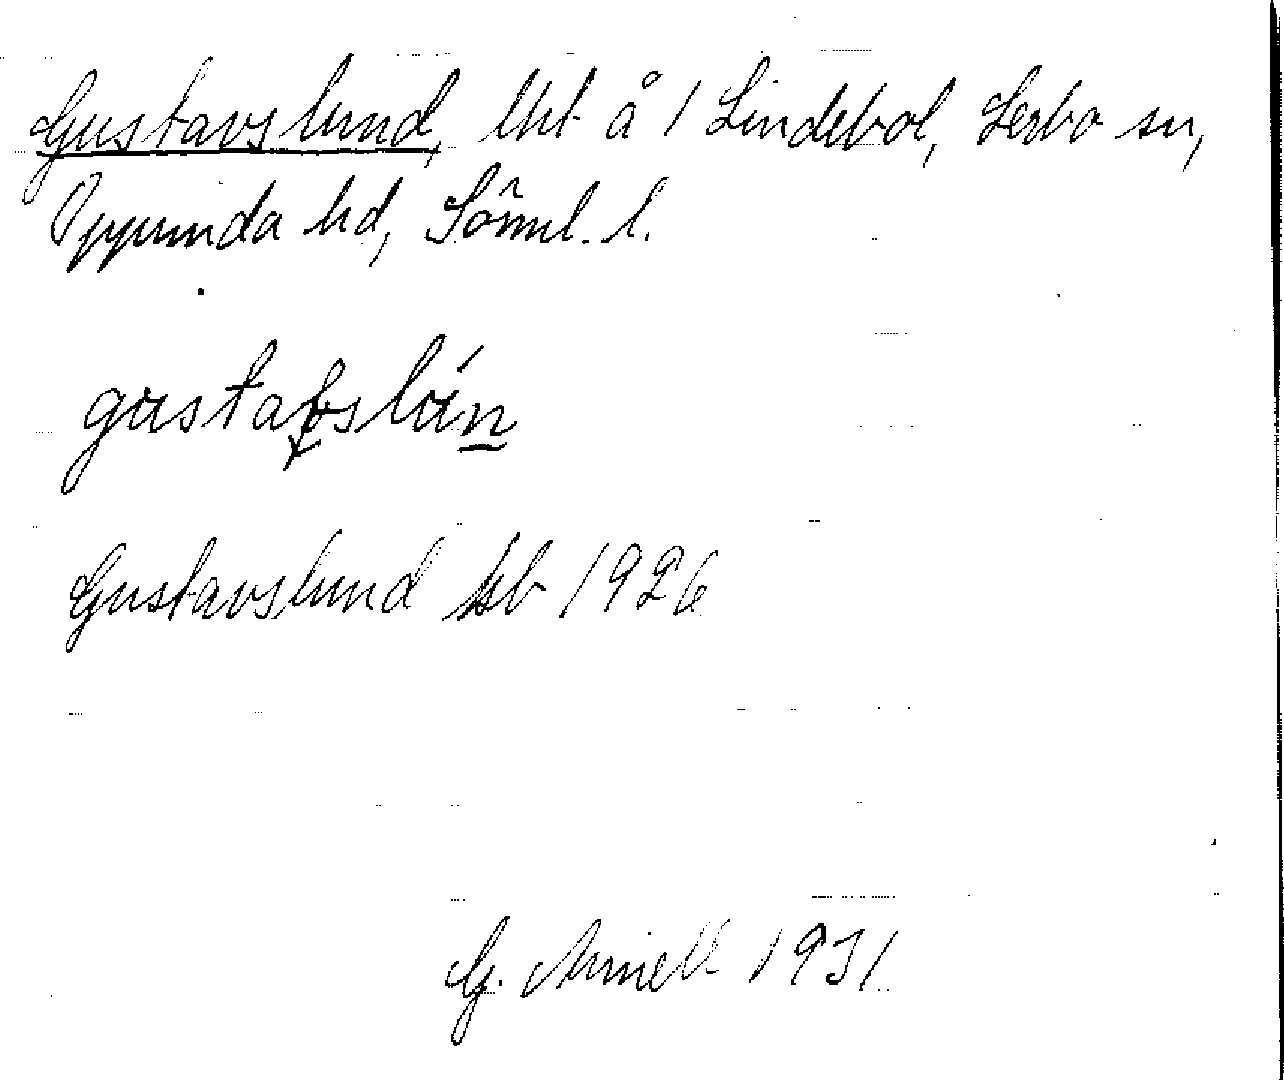 Gustavslund, lht å 1 Lindebol, Lerbo sn,
Oppunda hd, Söml. l.
gustafslún
Gustavslund kb 1926
G. Arnell 1931